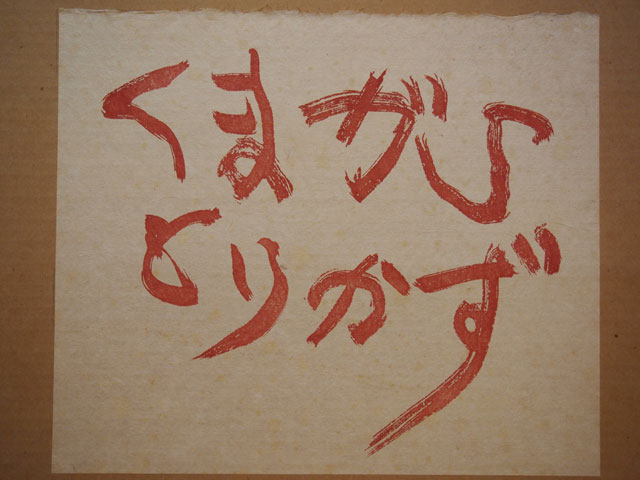 くまがひ
もりかず